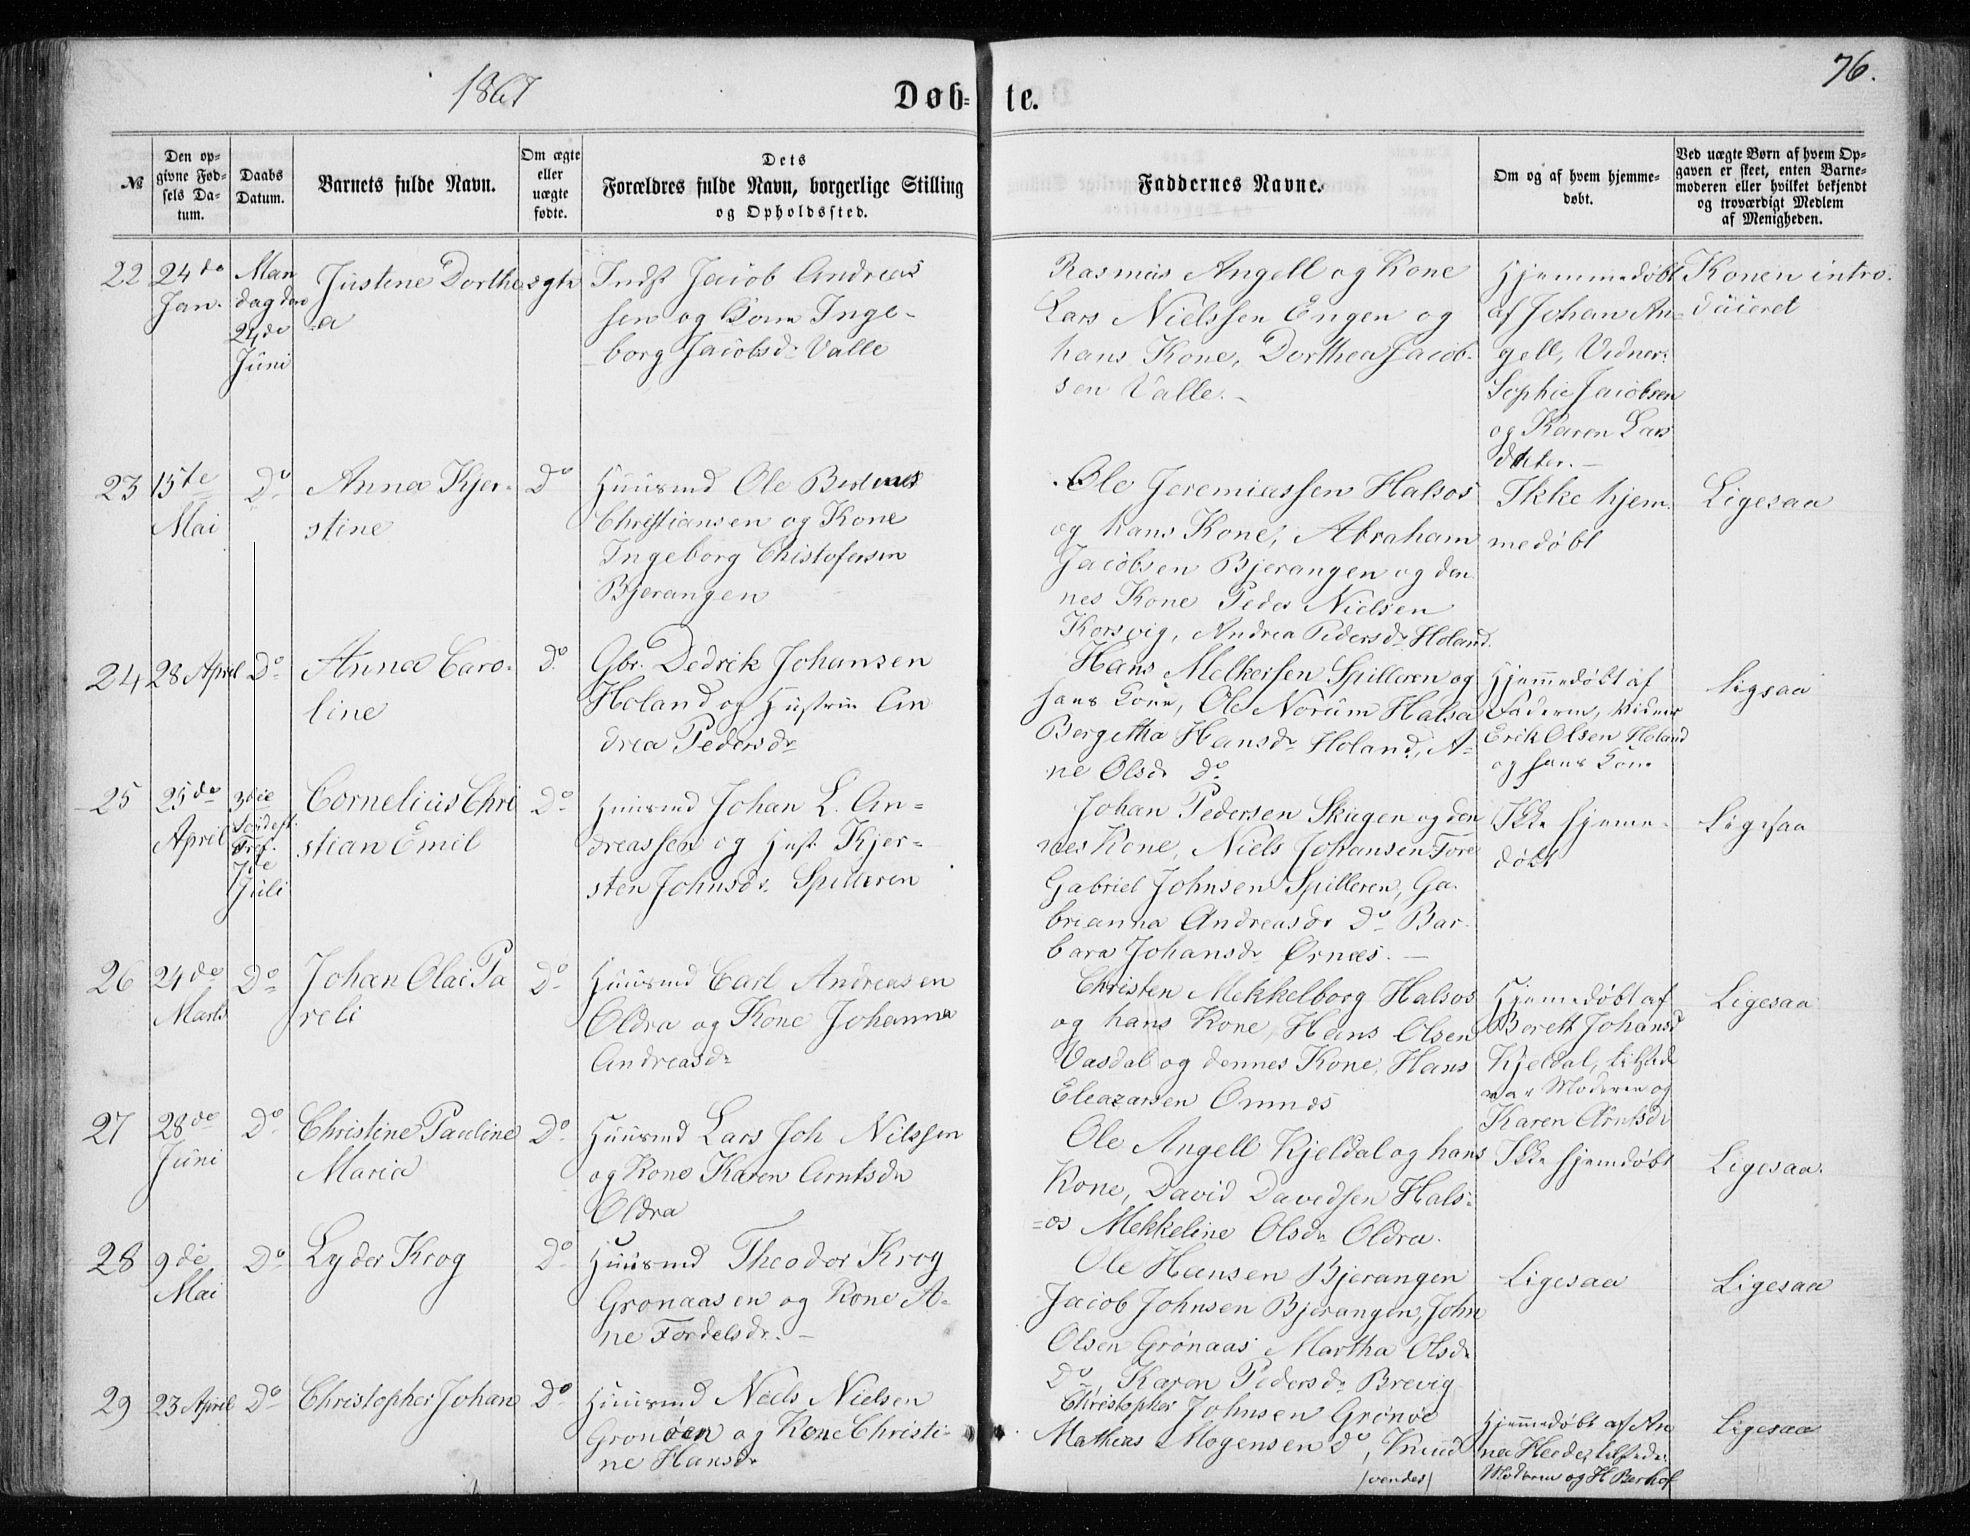 1867
Døb=te.
76.
№
Den op=
givne Fød=
sels Da=
tum.
Daabs
Datum.
Barnets fulde Navn.
Om ægte
eller
uægte
fødte.
Dets
Forældres fulde Navn, borgerlige Stilling
og Opholdssted.
Faddernes Navne.
Om og af hvem hjemme=
døbt.
Ved uægte Børn af hvem Op=
gaven er skeet, enten Barne=
moderen eller hvilket bekjendt
og troværdigt Medlem
af Menigheden.
22
24de
Jan.
Man
dag den
24de
Juni
Justine Dorthe
=a
ægte
Indst Jacob Andreas
sen og Kone Inge-
borg Jacobsdr Valle
Rasmus Angell og Kone
Lars Nielssen Engen og
hans Kone, Dorthea Jacob-
sen Valle.-
Hjemmedøbt
af Johan An=
gell, Vidner:
Sophie Jacobsen
og Karen Lars
datter.-
Konen intro-
duceret
23
15te
Mai
Do
Anna Kjer-
stine
Do
Huusmd Ole
Christiansen og Kone
Ingeborg Christofersen
Bjerangen
Ole Jeremiassen Halsos
og hans Kone, Abraham
Jacobsen Bjerangen og den
nes Kone Peder Nielsen
Korsvig, Andrea Pedersdr Holand.
Ikke hjem-
medøbt
Ligesaa
24
28 April
Do
Anna Caro-
line
Do
Gbr. Dedrik Johansen
Holand og Hustru An
drea Pedersdr
Hans Melkersen Spilleren og
hans Kone, Ole Norum Halsa
Bergitha Hansdr Holand, A-
ne Olsdr Do
Hjemmedøbt af
Faderen, Vidner
Erik Olsen Holand
og hans Kone
Ligsaa
25
25de
April
3die
Søndf.
Tref.
7de
Juli
Cornelius Chri
stian Emil
Do
Huusmd Johan L. An-
dreassen og Hust. Kjer-
sten Johnsdr Spilleren
Johan Pedersen Skugen og den
nes Kone, Niels Johansen Fore
Gabriel Johnsen Spilleren, Ga-
brianna Andreasdr Do Bar-
bara Johansdr Ørnæs.-
Ikke hjemme-
døbt
Ligesaa
26
24de
Marts
Do
Johan Olai Pa
reli
Do
Huusmd Carl Andreasen
Oldra og Kone Johanna
Andreasdr
Christen Mekkelborg Halsos
og hans Kone, Hans Olsen
Vasdal og dennes Kone, Hans
Eleazarsen Omnes
Hjemmedøbt af
Berett Johansd
Kjeldal, tilstede
var Moderen og
Karen Arntsdr
Ligesaa
27
28de
Juni
Do
Christine Pauline
Maria
Do
Huusmd Lars Joh Nilssen
og Kone Karen Arntsdr
Oldra
Ole Angell Kjeldal og hans
Kone, David Davedsen Hals-
=os Mekkeline Olsdr Oldra.
Ikke hjemdøbt
Ligesaa.
28
9de
Mai
Do
Lyder Krog
Do
Huusmd Theodor Krog
Gronaasen og Kone A-
ne Tordelsdr.-
Ole Hansen Bjerangen
Jacob Johnsen Bjerangen, John
Olsen Grønaas Martha Olsdr
Do, Karen Pedersdr Brevig
Ligesaa
Ligesaa
29
23 April
Do
Christopher Johan
Do
Huusmd Niels Nielsen
Gronøen og Kone Christi-
ne Hansdr
Christopher Johnsen Grønøe
Mathias Mogensen Do, Knud
/vendes/
Hjemmedøbt af An
na Heede, tilstede:
Moderen og H Berhof
Ligesaa